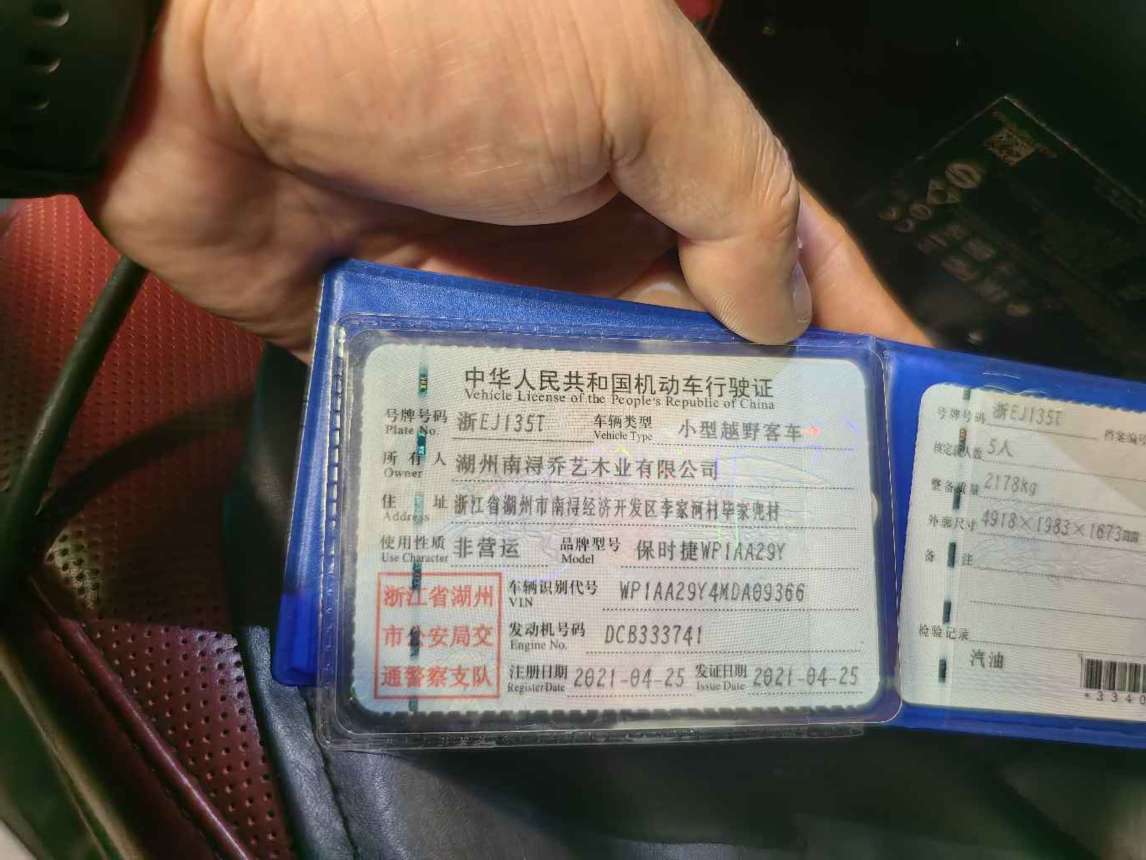 中华人民共和国机动车行驶证
Vehicle License of the People's Republic of China
号牌号码 浙EJ135T 车辆类型 小型越野客车
Plate No. Vehicle Type
所有人 湖州南浔乔艺木业有限公司
Owner
住址 浙江省湖州市南浔经济开发区李家河村毕家兜村
Address
使用性质 非营运 品牌型号 保时捷WP1AA29Y
Use Character Model
浙江省湖州
市公安局交
通警察支队
车辆识别代号 WP1AA29Y4MDA09366
VIN
发动机号码 DCB333741
Engine No.
注册日期 2021-04-25 发证日期 2021-04-25
Register Date Issue Date
号牌号码 浙EJ135T 档案编号
核定载人数 5人
整备质量 2178kg
外廓尺寸 4918×1983×1673
备注
检验记录
汽油
*3340